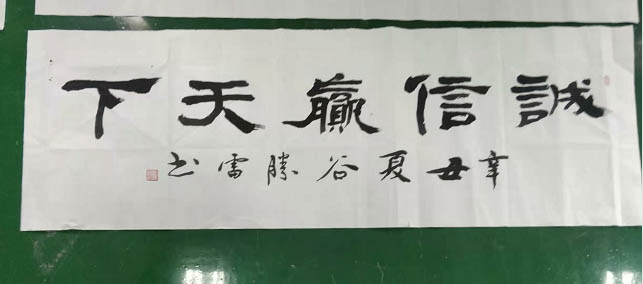 誠信贏天下
辛丑夏谷勝雷书